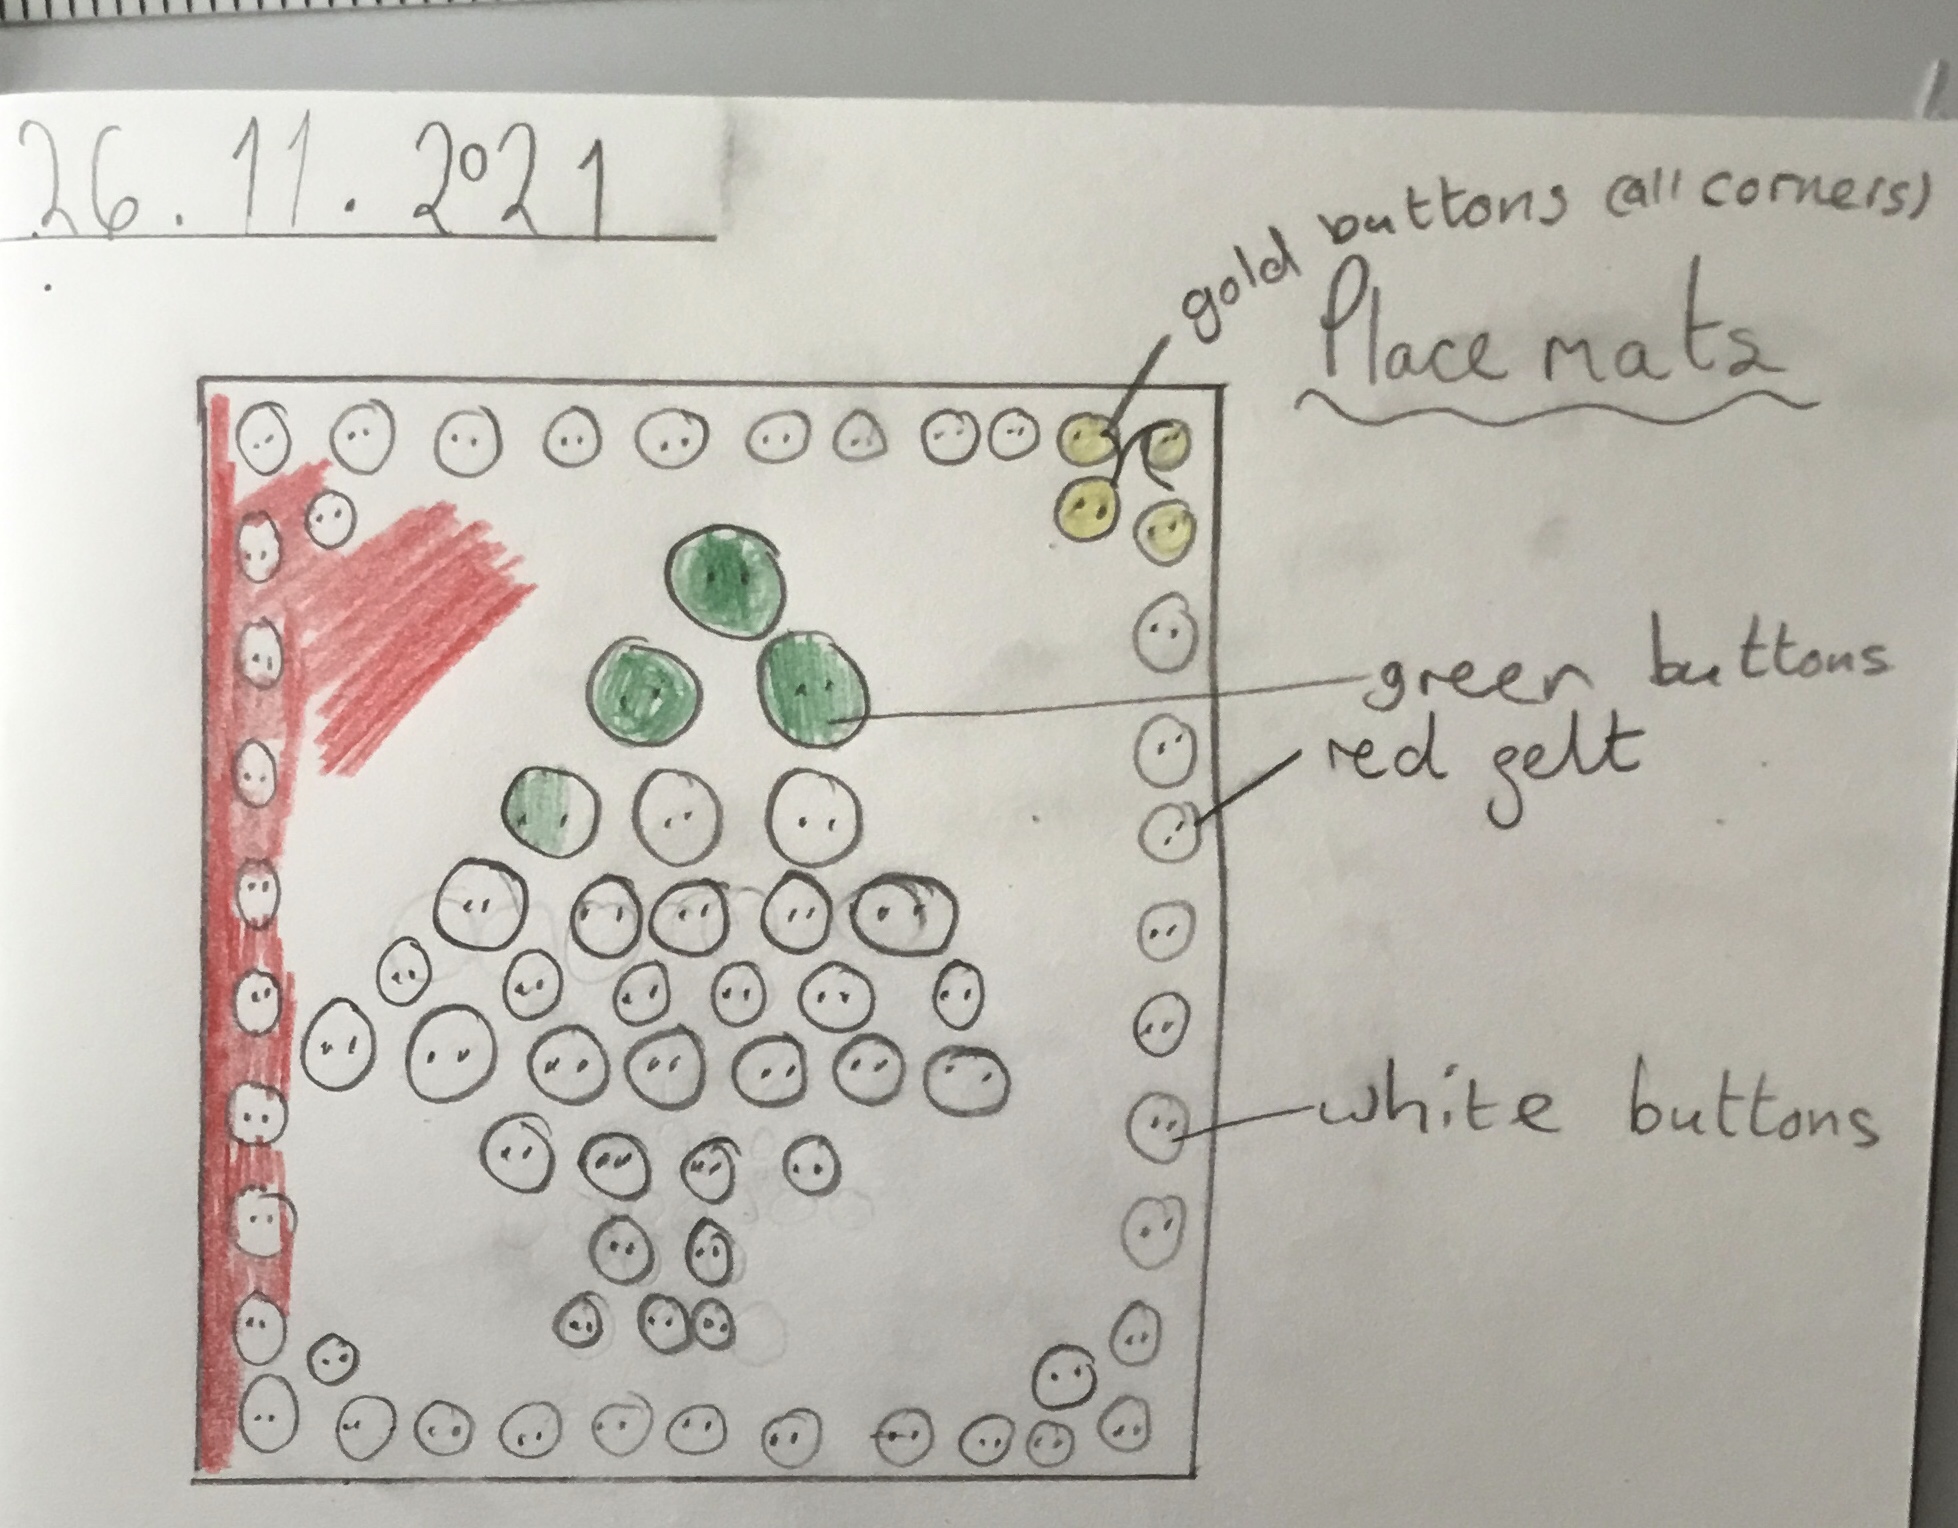 26.11.2021
gold buttons (all corners)
Place mats
green buttons
red gelt
white buttons